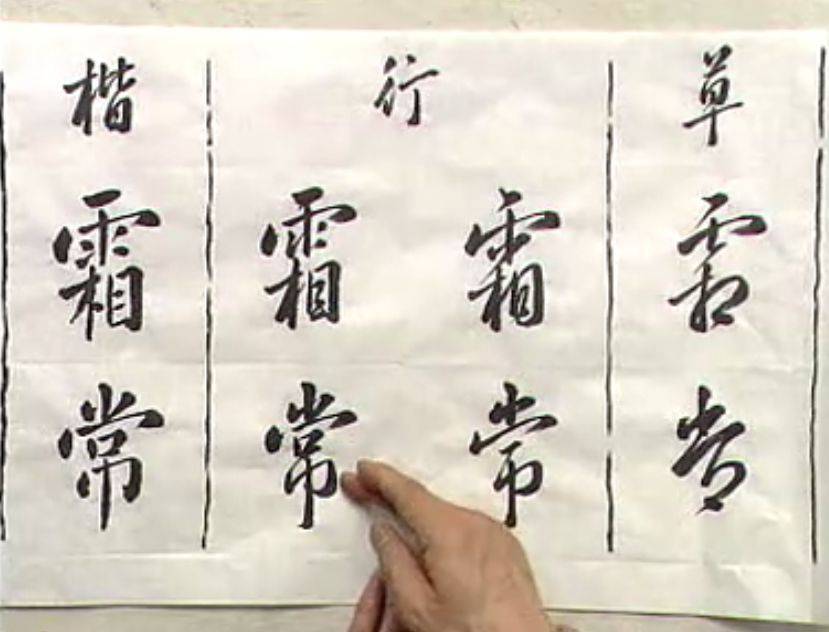 楷 行 草
霜 霜 霜 霜
常 常 常 常